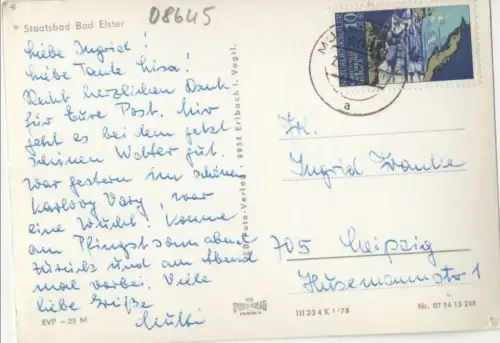 Staatsbad Bad Elster
08645
Liebe Ingrid!
Liebe Tante Lisa!
Recht herzlichen Dank
für Eure Post. Mir
geht es bei dem jetzt
schönen Wetter gut.
War gestern im schönen
Karlovy Vary, war
eine Wucht! Komme
am Pfingstsonnabend
zurück und am Abend
mal vorbei. Viele
liebe Grüße
Mutti
EVP – 25 M
Foto-Verlag · 9934 Erlbach i. Vogtl.
10
a
Frl.
Ingrid
705 Leipzig
Husemannstr 1
III 23 4 K 1/78
Nr. 07 14 13 248